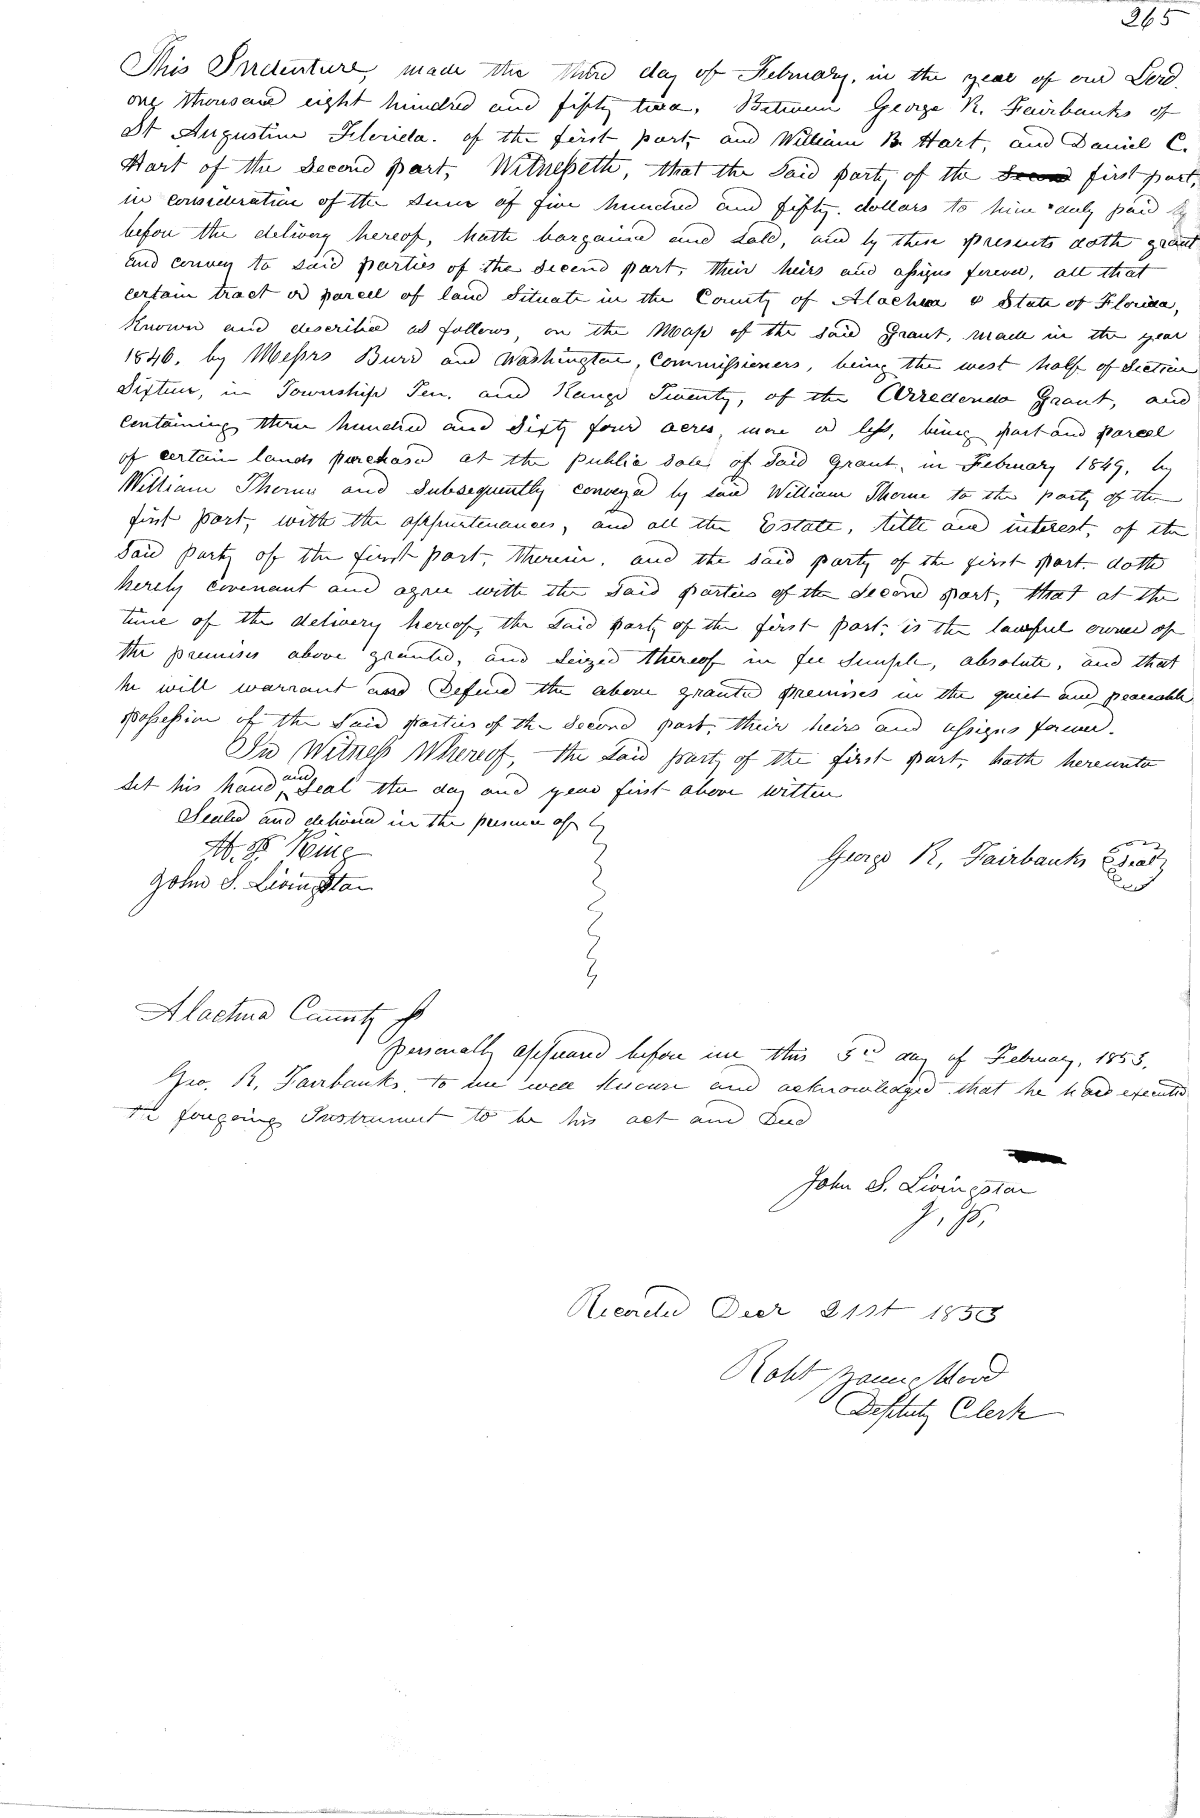 265
This Indenture, made the third day of February, in the year of our Lord.
one thousand eight hundred and fifty two, Between George R. Fairbanks of
St Augustine Florida. of the first part, and William B. Hart, and Daniel C.
Hart of the Second part, Witnesseth, that the Said party of the Second first part,
in consideration of the sum of five hundred and fifty. dollars to him duly paid
before the delivery hereof, hath bargained and sold, and by these presents doth grant
and convey to said parties of the second part, their heirs and assigns forever, all that
certain tract or parcel of land Situate in the County of Alachua & State of Florida,
Known and described as follows, on the Map of the said Grant, made in the year
1846, by Messrs Burr and Washington, Commissioners, being the west half of Section
Sixteen, in Township Ten. and Range Twenty, of the Arredondo Grant, and
containing three hundred and Sixty four acres, more or less, being part and parcel
of certain lands purchased at the public sale of said Grant, in February 1849, by
William Thorne and Subsequently conveyed by said William Thorne to the party of the
first part, with the appurtenances, and all the Estate, title and interest, of the
Said party of the first part, therein, and the said party of the first part. doth
hereby covenant and agree with the Said parties of the Second part, that at the
time of the delivery hereof, the said party of the first part, is the lawful owner of
the premises above granted, and Seized thereof in fee Simple, absolute, and that
he will warrant and Defend the above granted premises in the quiet and peaceable
possession of the Said parties of the Second part, their heirs and assigns forever.
In Witness Whereof, the Said party of the first part, hath hereunto
Set his hand and Seal the day and year first above written
Sealed and delivered in the presence of
H. F. King
George R. Fairbanks Seal
John S. Livingston
Alachua County ss
personally appeared before me this 3rd day of February, 1853,
Geo. R. Fairbanks. to me well Known and acknowledged that he had executed
the foregoing Instrument to be his act and Deed
John S. Livingston
J. P.
Recorded Decr 21st 1853
Robt Youngblood
Deputy Clerk